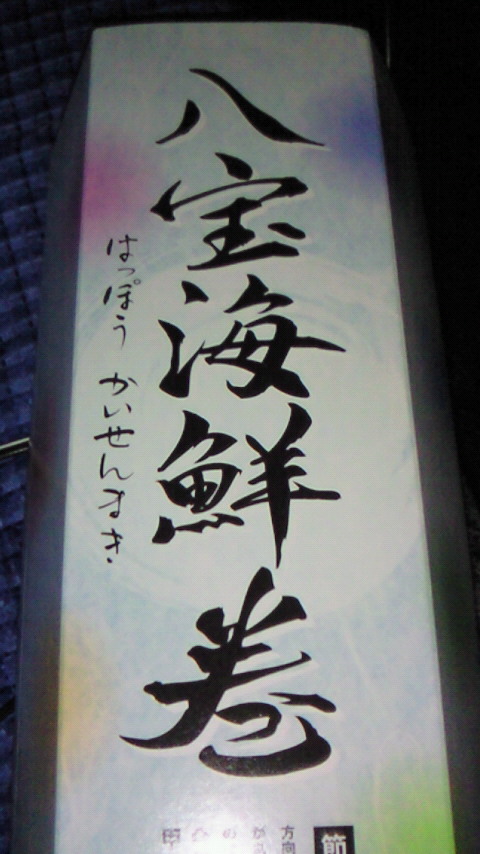 八宝海鮮巻
はっぽう かいせんまき
節
方向